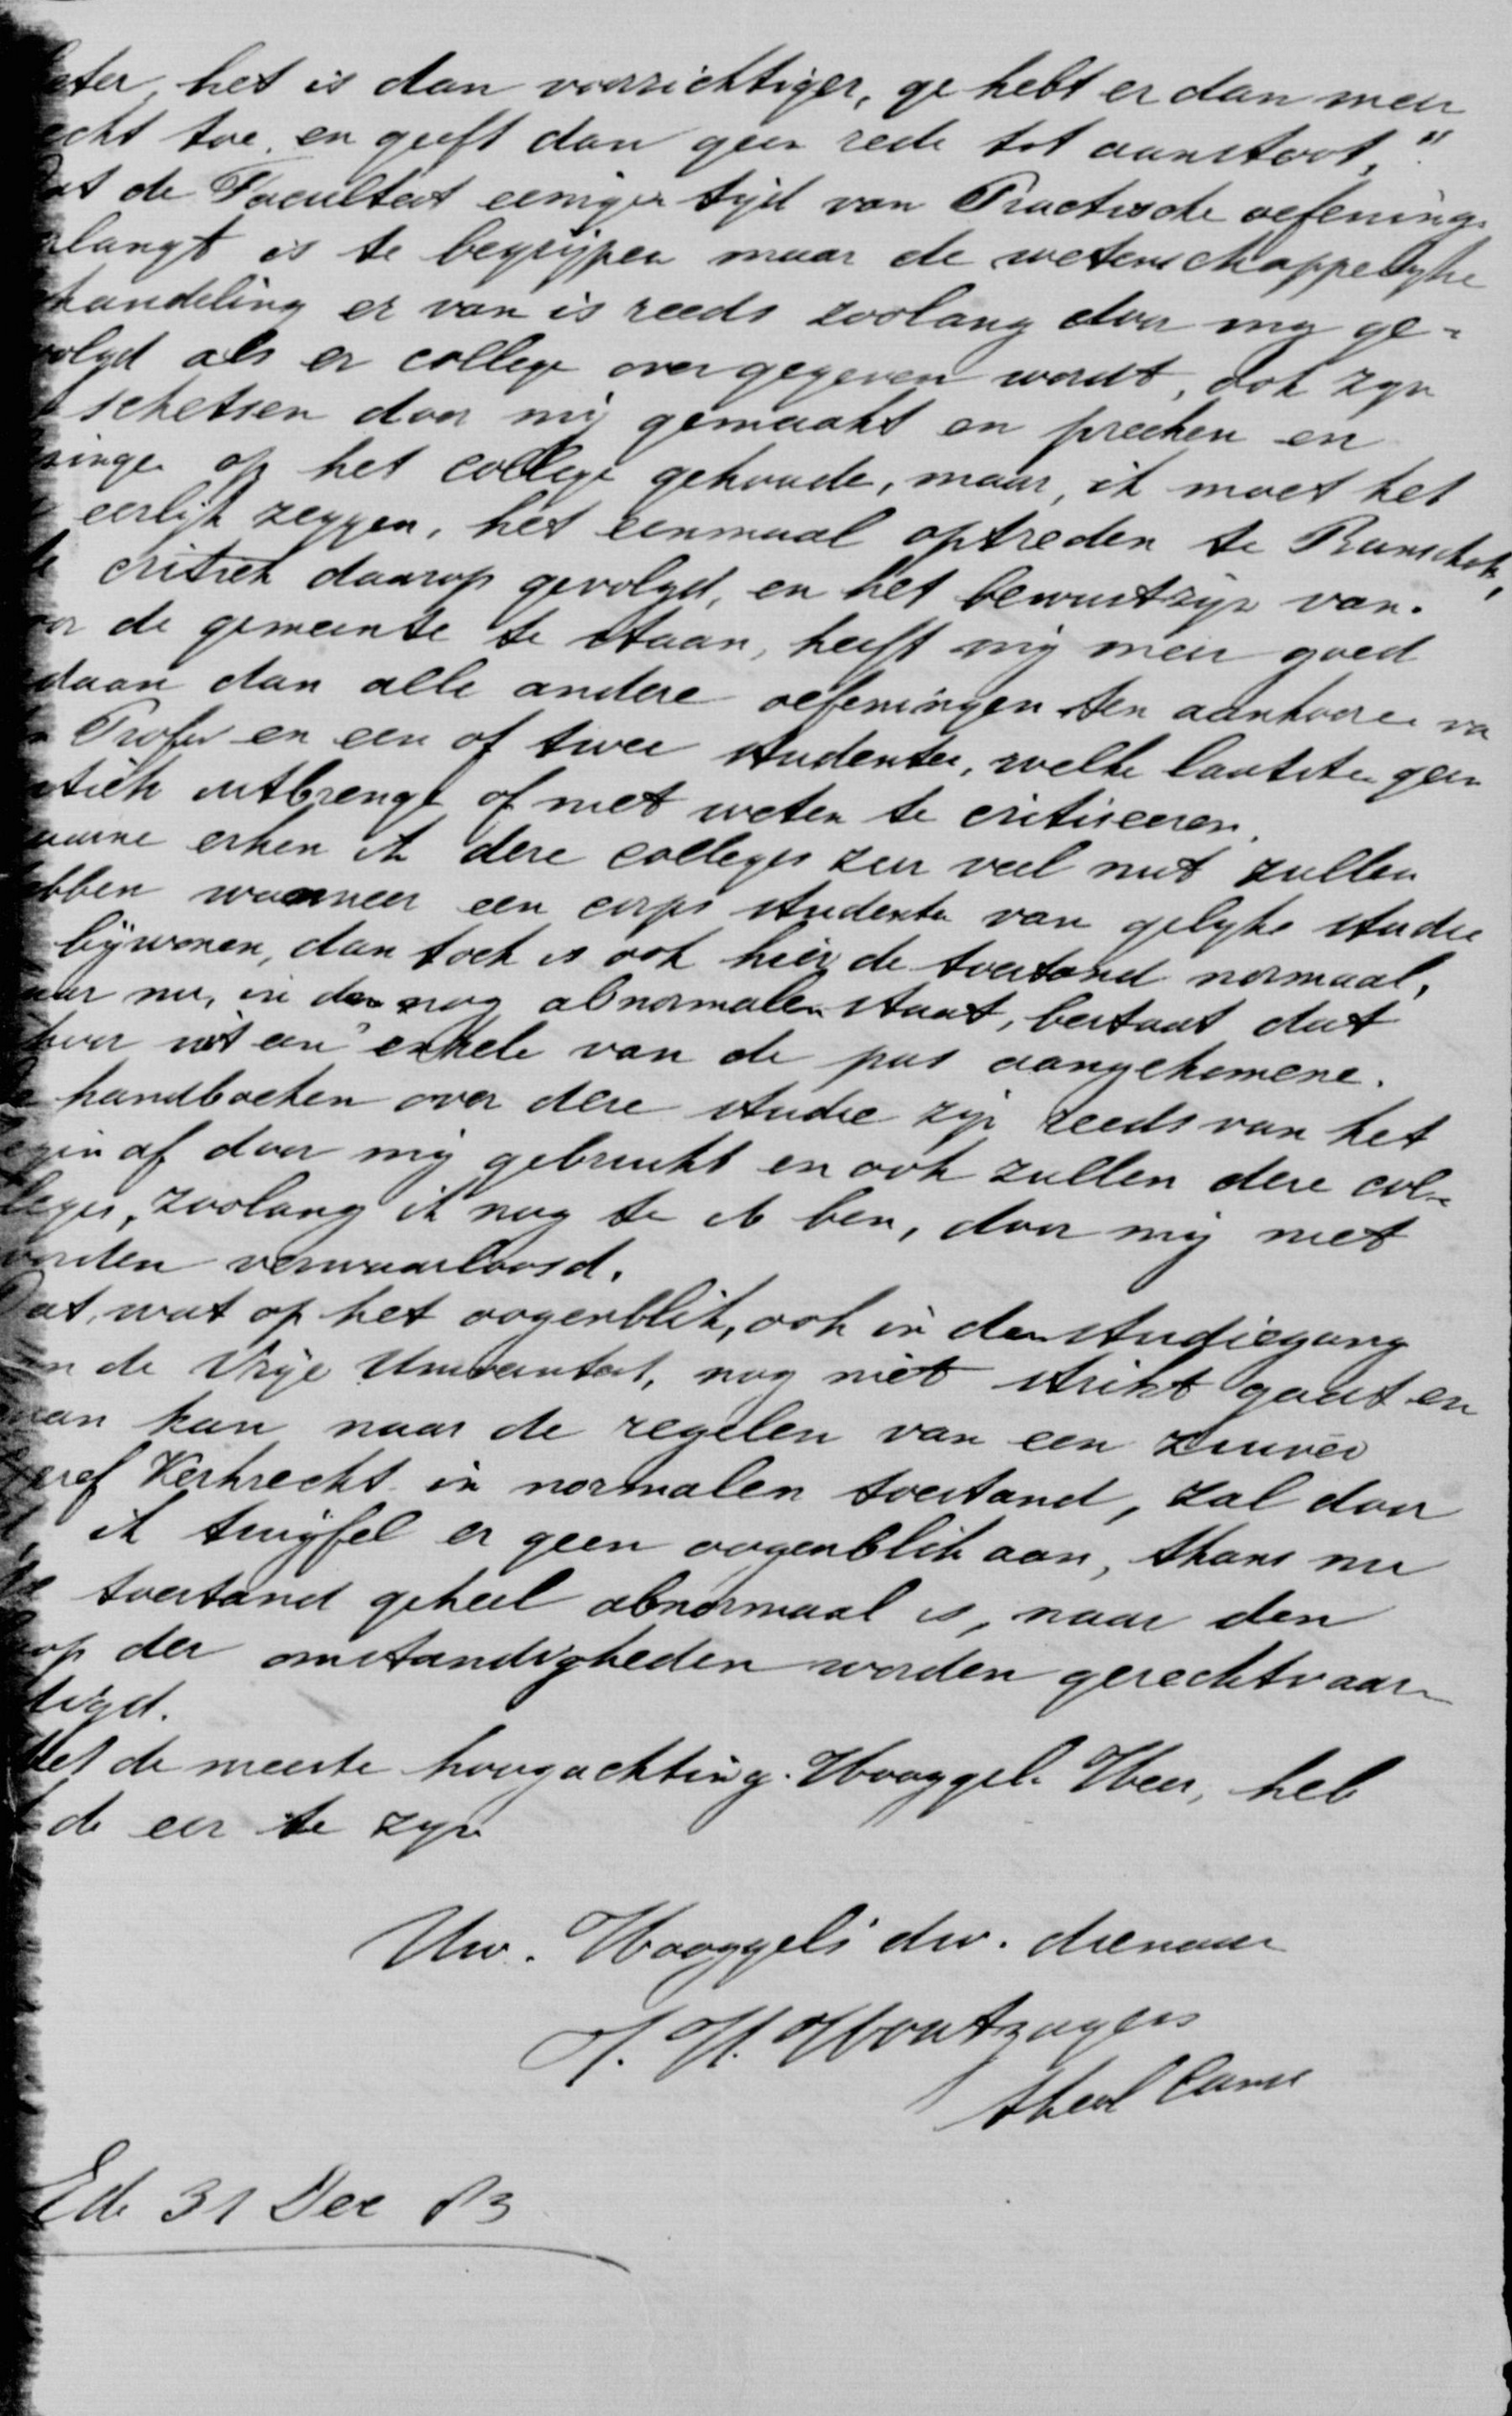 ater, het is dan voorzichtiger, ge hebt er dan meer
echt toe, en geeft dan geen rede tot aanstoot,"
at de Faculteit eeniger tijd van Practische oefening
rlangt is te begrijpen maar de wetenschappelyke
handeling er van is reeds zoolang door my ge-
volgd als er college over gegeven wordt, ook zyn
schetsen door mij gemaakt en preeken en
zinge op het college gehoude, maar, ik moet het
eerlijk zeggen, het eenmaal optreden te Bunschote,
critiek daarop gevolgd, en het bewustzijn van.
or de gemeente te staan, heeft mij meer goed
daan dan alle andere oefeningen ten aanhoore va
Profr en een of twee studenten, welke laatste geen
itiek uitbrengt of niet weten te critiseeren.
aarne erken ik deze colleges zeer veel nut zullen
bben wanneer een corps studenten van gelyke studie
bijwonen, dan toch is ook hier de toestand normaal,
aar nu, in den nog abnormalen staat, bestaat dat
hoor uit een enkele van de pas aangekomene.
handboeken over deze studie zijn reeds van het
egin af door mij gebruikt en ook zullen deze col-
leges, zoolang ik nog te A ben, door mij niet
worden verwaarloosd.
Dat, wat op het oogenblik, ook in den studiegang
an de Vrije Universiteit, nog niet strikt gaat en
gaan kan naar de regelen van een zuiver
Geref Kerkrecht in normalen toestand, zal door
ik twijfel er geen oogenblik aan, thans nu
toestand geheel abnormaal is, naar den
oop der omstandigheden worden gerechtvaar-
digd.
Met de meeste hoogachting. Hooggel. Heer, heb
k de eer te zyn
Uw. Hooggels dw. dienaar
J. H. Houtzagers
theol Cand
Ede 31 Dec 83